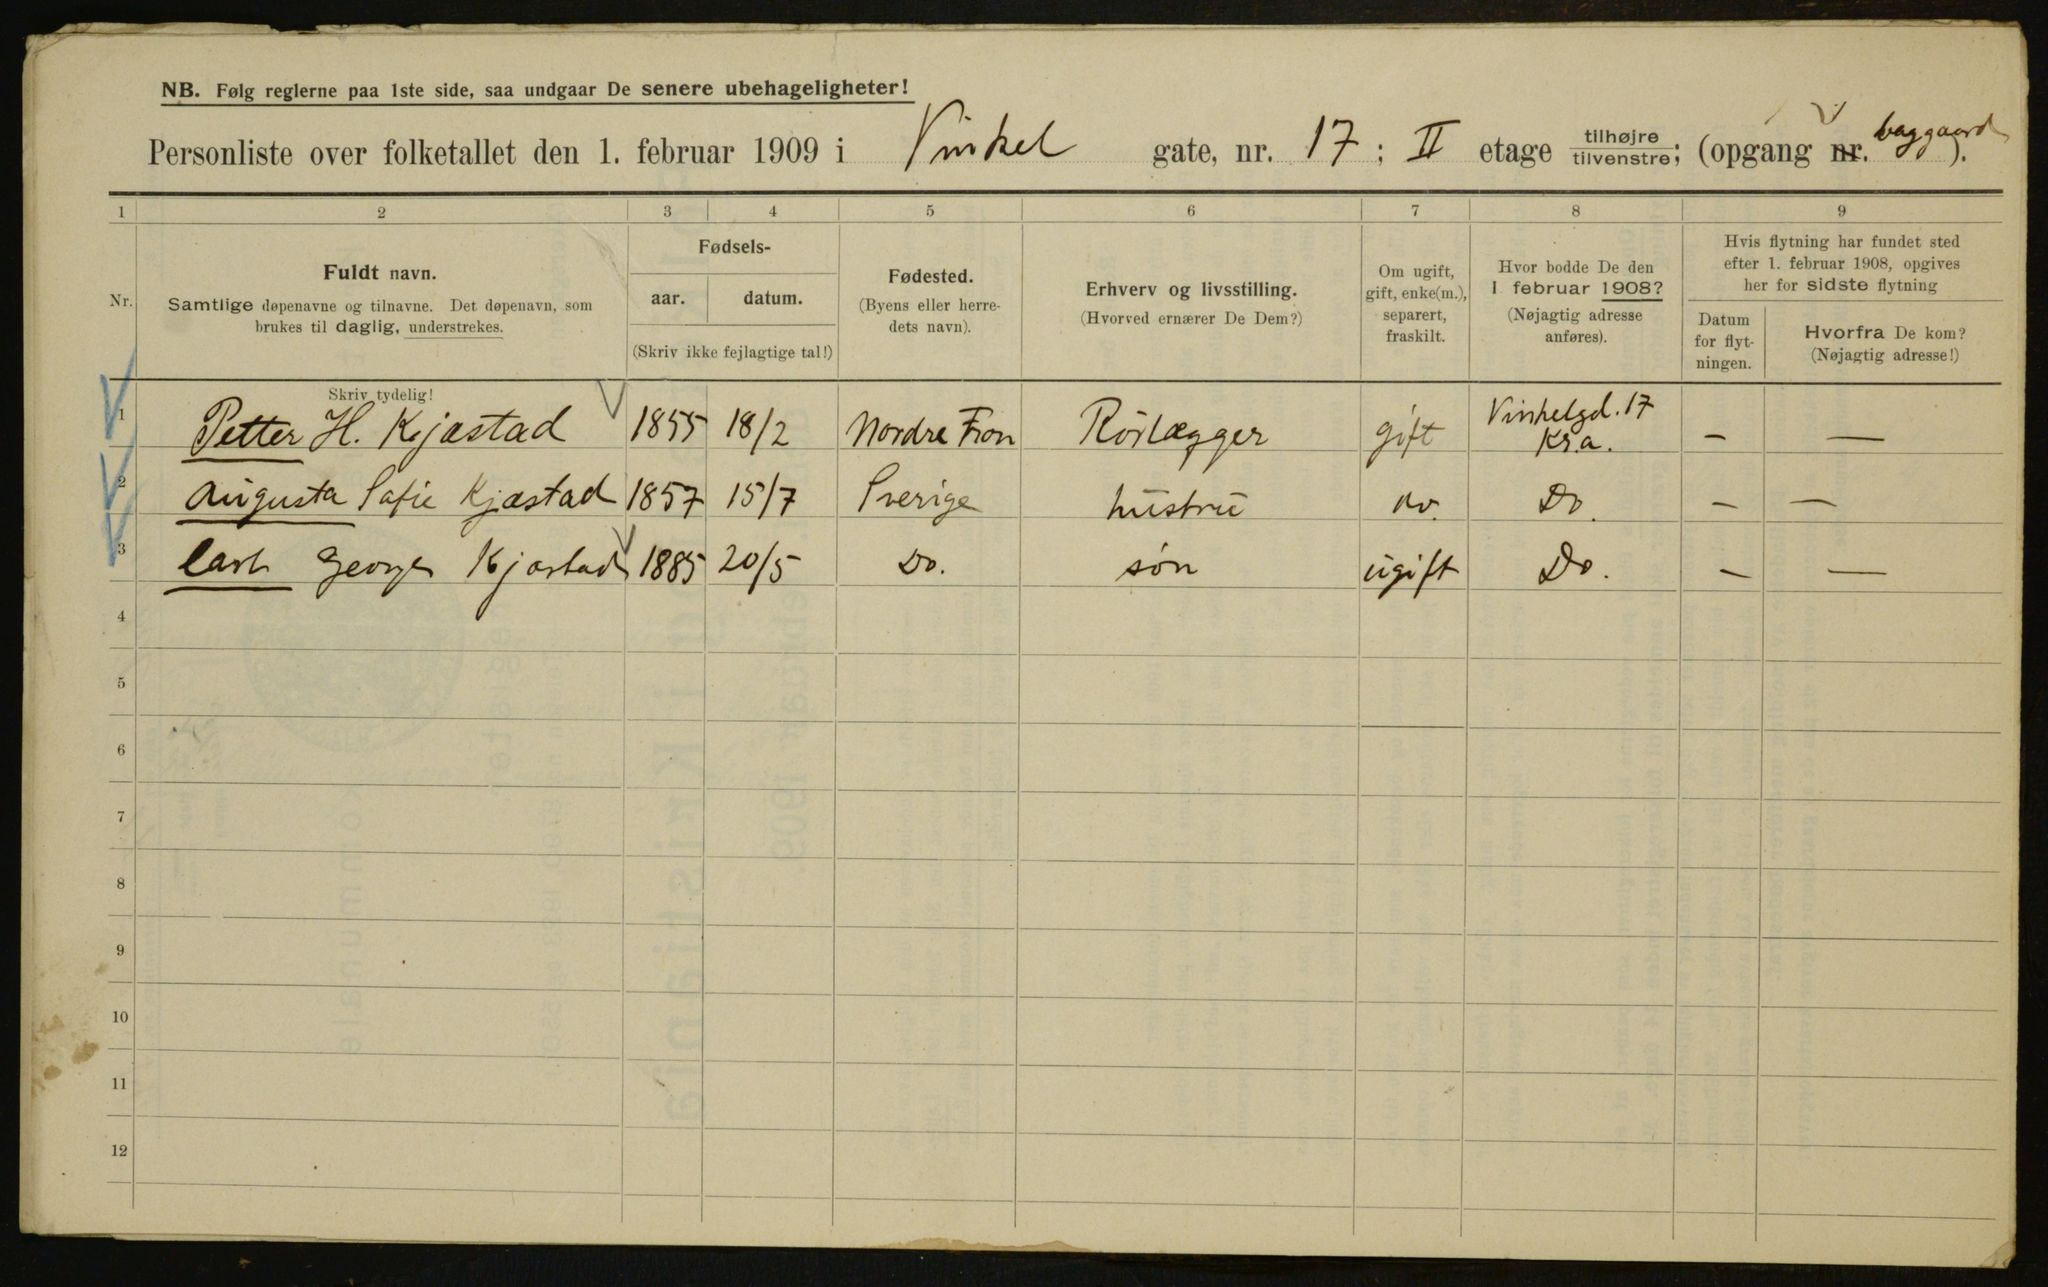 NB. Følg reglerne paa 1ste side, saa undgaar De senere ubehageligheter!
Personliste over folketallet den 1. februar 1909 i Vinkel gate, nr. 17; II etage tilhøjre tilvenstre; (opgang nr. baggaard).
1 2 3 4 5 6 7 8 9
Nr.
Fuldt navn.
Samtlige døpenavne og tilnavne. Det døpenavn, som
brukes til daglig, understrekes.
Skriv tydelig!
Fødsels-
aar. datum.
(Skriv ikke fejlagtige tal!)
Fødested.
(Byens eller herre-
dets navn).
Erhverv og livsstilling.
(Hvorved ernærer De Dem?)
Om ugift,
gift, enke(m.),
separert,
fraskilt.
Hvor bodde De den
1 februar 1908?
(Nøjagtig adresse
anføres).
Hvis flytning har fundet sted
efter 1. februar 1908, opgives
her for sidste flytning
Datum
for flyt-
ningen.
Hvorfra De kom?
(Nøjagtig adresse!)
1 Petter H. Kjæstad 1855 18/2 Nordre Fron Rörlægger gift Vinkelgd. 17 Kr.a. – –
2 Augusta Sofie Kjæstad 1857 15/7 Sverige hustru do. Do. – –
3 Carl George Kjæstad 1885 20/5 Do. søn ugift Do. – –
4
5
6
7
8
9
10
11
12